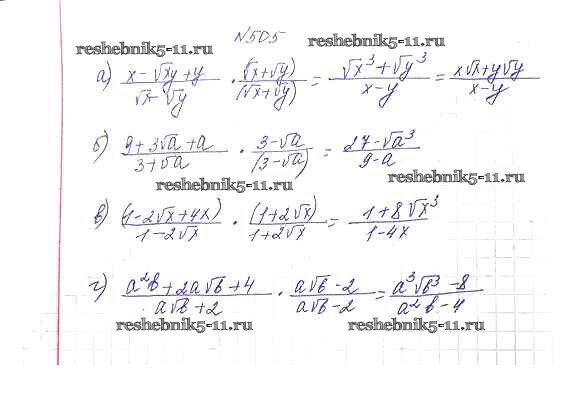 N505
reshebnik5-11.ru reshebnik5-11.ru
а) (x-√xy+y)/(√x-√y) · (√x+√y)/(√x+√y) = (√x³+√y³)/(x-y) = (x√x+y√y)/(x-y)
б) (9+3√a+a)/(3+√a) · (3-√a)/(3-√a) = (27-√a³)/(9-a)
reshebnik5-11.ru
в) (1-2√x+4x)/(1-2√x) · (1+2√x)/(1+2√x) = (1+8√x³)/(1-4x)
г) (a²b+2a√b+4)/(a√b+2) · (a√b-2)/(a√b-2) = (a³√b³-8)/(a²b-4)
reshebnik5-11.ru reshebnik5-11.ru